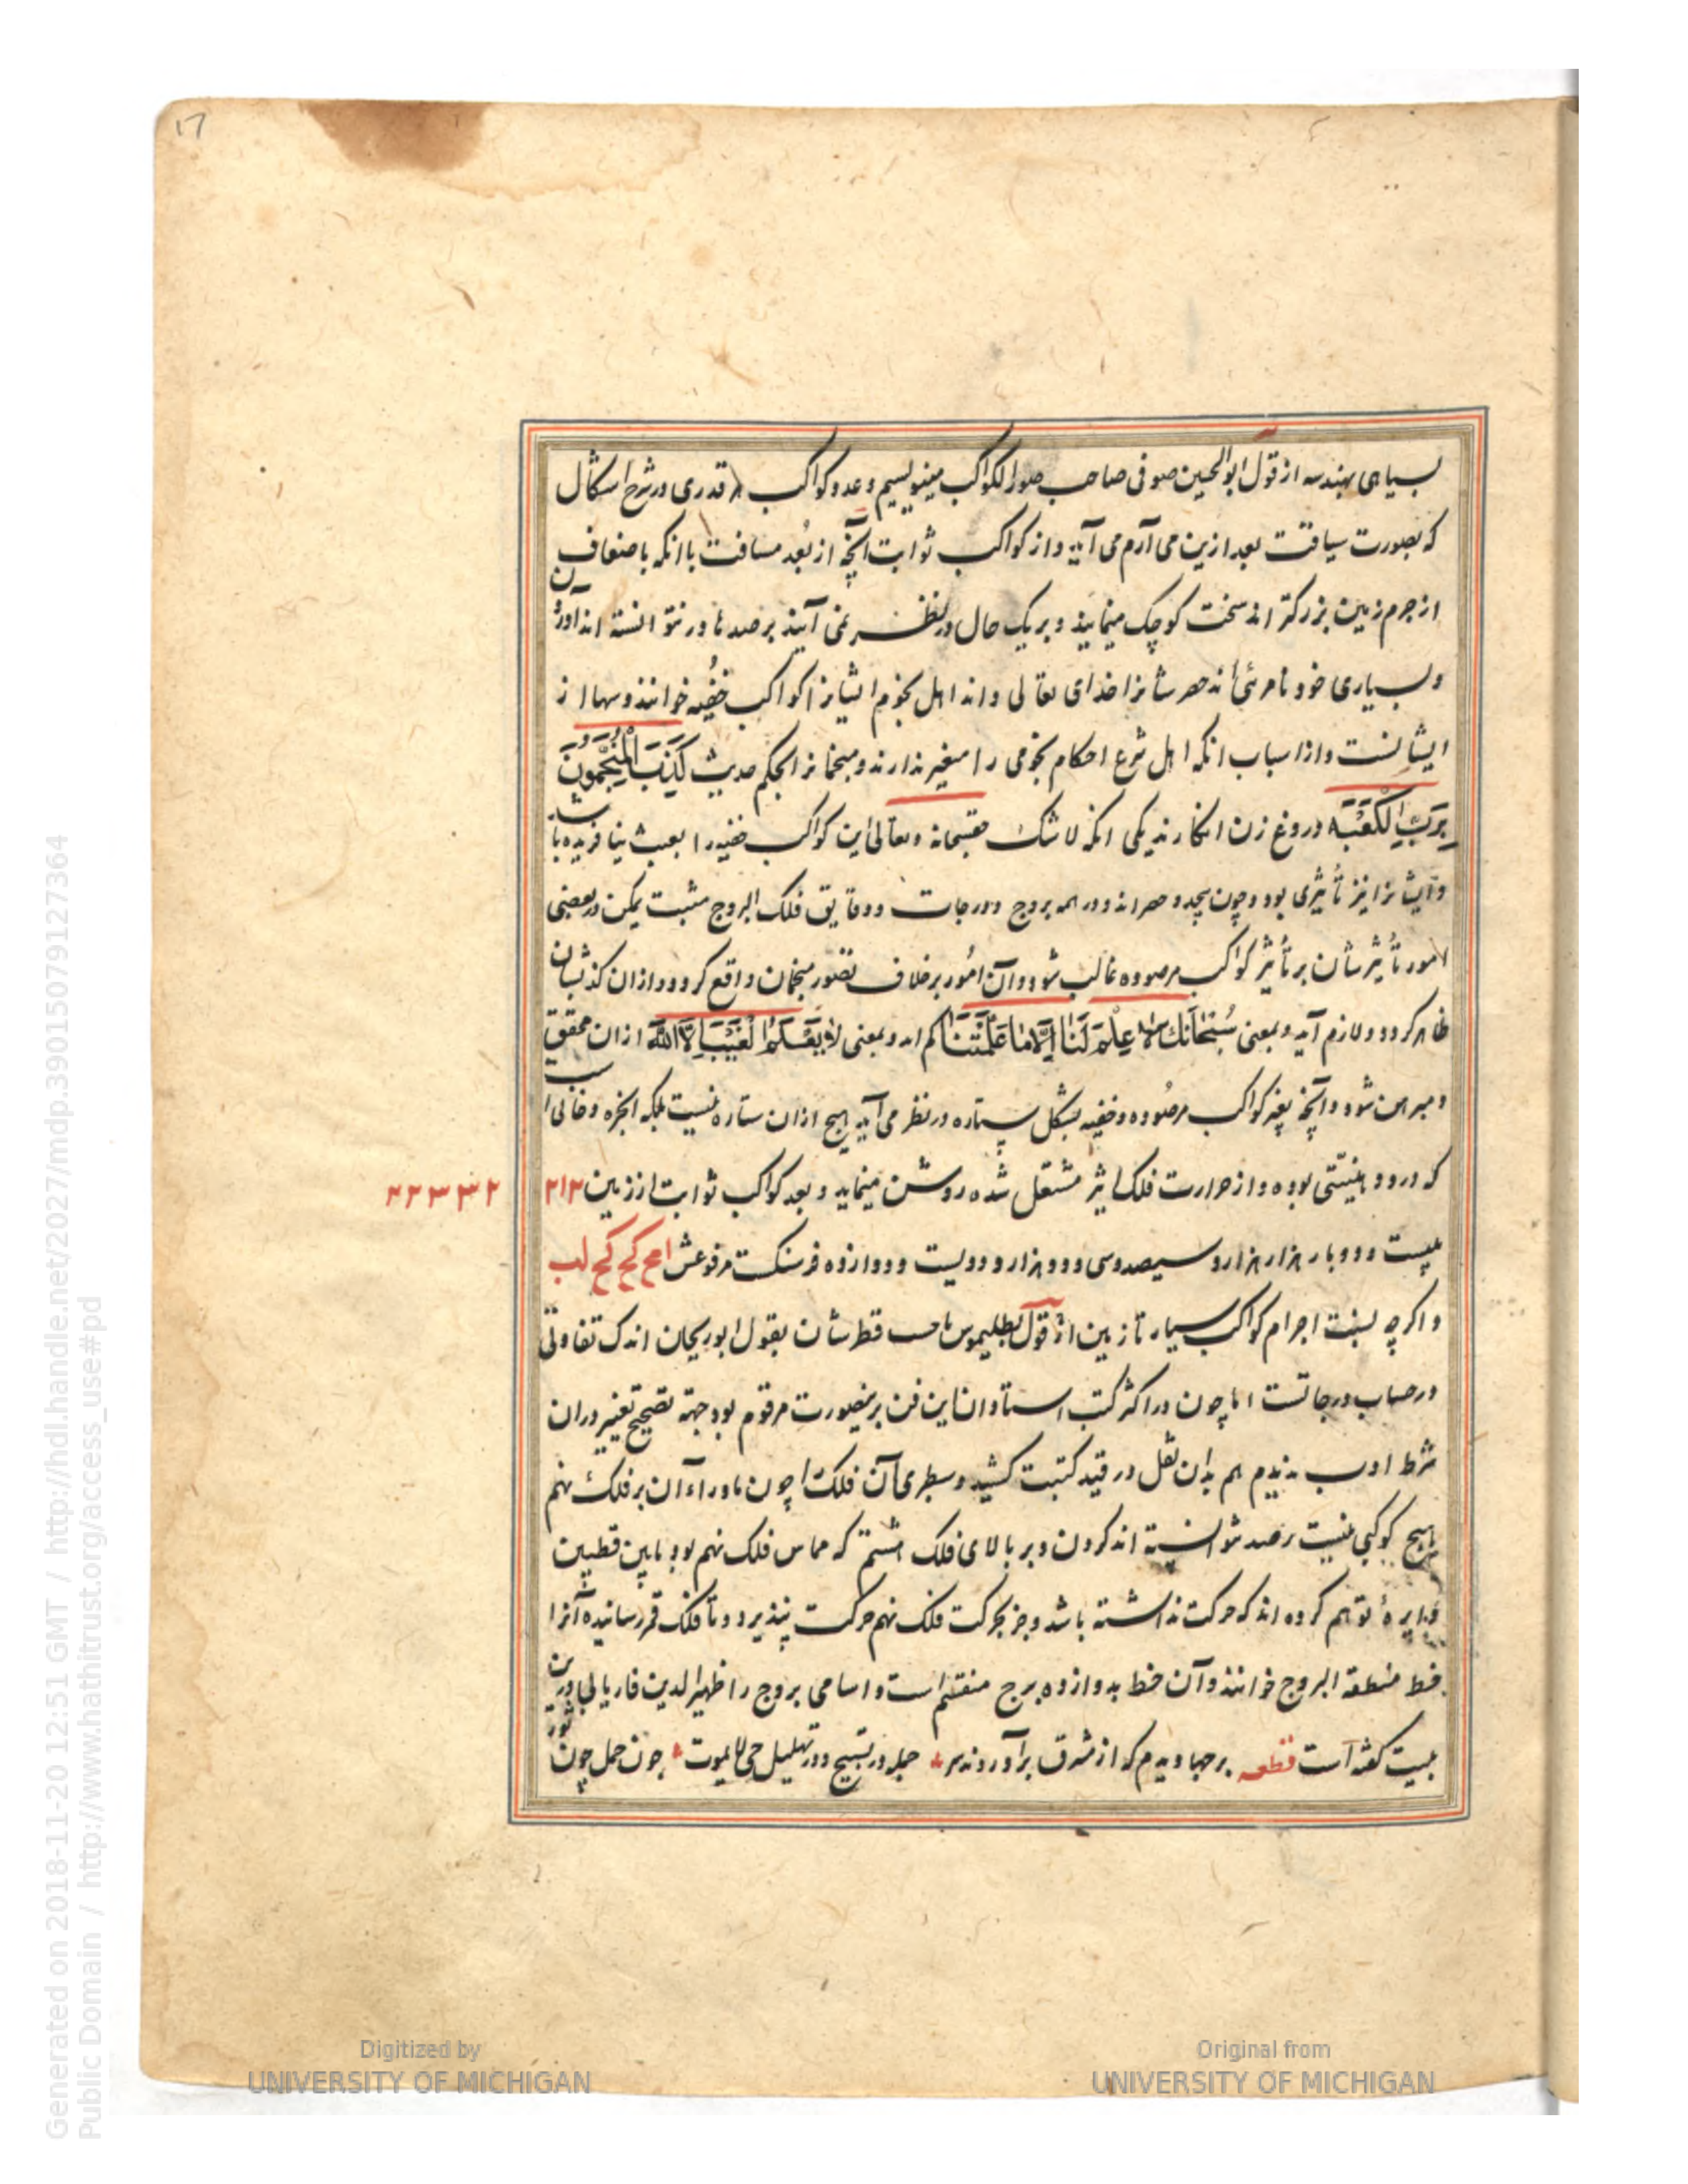 17
بسیاهی هندسه از قول ابوالحسین صوفی صاحب صور الکواکب مینویسیم و عدد کواکب هر قدری در شرح اشکال
که بصورت سیاقت بعد ازین می آرم می آید و از کواکب ثوابت آنچه از بُعد مسافت با انکه باضعاف
از جرم زمین بزرکتر اند سخت کوچک مینمایند و بریک حال در نظر نمی آیند برصدها در نتوانسته اند آوردن
و بسیاری خود نامرئی اند حصر شانرا خدای تعالی داند اهل نجوم ایشانرا کواکب خفیه خوانند و سها از
ایشانست و از اسباب انکه اهل شرع احکام نجومی را معتبر ندارند و منجمانرا بحکم حدیث کَذَبَ الْمُنَجِّمُونَ
بِرَبِّ الْکَعْبَه دروغ زن انکارند یکی انکه لاشک حقسبحانه و تعالی این کواکب خفیه را بعبث نیافریده باشد
و ایشانرا نیز تأثیری بود و چون بیحد و حصر اند و در همه بروج و درجات و دقایق فلک البروج مثبت یمکن در بعضی
امور تأثیر شان بر تأثیر کواکب مرصوده غالب شود و آن امور برخلاف تصور منجمان واقع کردد و از ان کذبشان
ظاهر کردد و لازم آید و بمعنی سُبْحَانَكَ لا عِلْمَ لَنَا إِلَّا مَا عَلَّمْتَنَا کم اند و بمعنی لا یَعْلَمُ الْغَیْبَ اِلَّا اللّٰهُ از ان محقق
و مبرهن شود و آنچه بغیر کواکب مرصوده و خفیه بشکل ستاره در نظر می آید هیچ از ان ستاره نیست بلکه ابخره و دخانی است
که در و دهنیتی بوده و از حرارت فلک اثیر مشتعل شده روشن مینماید و بعد کواکب ثوابت از زمین ۲۱۲
۲۲۳۳۲
بیست و دو بار هزار هزار و سیصد و سی و دو هزار و دویست و دوازده فرسنکست مرفوعش
و اکرچه نسبت اجرام کواکب سیار تا زمین از قول بطلیموس تا حسب قطرشان بقول ابوریحان اندک تفاوتی
در حساب درجاتست اما چون در اکثر کتب استادان این فن برینصورت مرقوم بود جهة تصحیح تغییر در ان
شرط ادب ندیدم هم بدان نقل در قید کتبت کشید و سطری آن فلک را چون ماوراء آن بر فلک نهم
هیچ کوکبی نیست رصد نتوانسته اند کردن و بر بالای فلک هشتم که مماس فلک نهم بود مابین قطبین
دایرهٔ توهم کرده اند که حرکت نداشته باشد و جز بحرکت فلک نهم حرکت نپذیرد و تا فلک قمر رسانیده آنرا
خط منطقة البروج خوانند و آن خط بدوازده برج منقسم است و اسامی بروج را ظهیر الدین فاریابی درین
بیت کفته است قطعه برجها دیدم که از مشرق برآوردند سر جمله در تسبیح و در تهلیل حی لایموت چون حمل چون ثور
Generated on 2018-11-20 12:51 GMT / http://hdl.handle.net/2027/mdp.39015079127364
Public Domain / http://www.hathitrust.org/access_use#pd
Digitized by
UNIVERSITY OF MICHIGAN
Original from
UNIVERSITY OF MICHIGAN